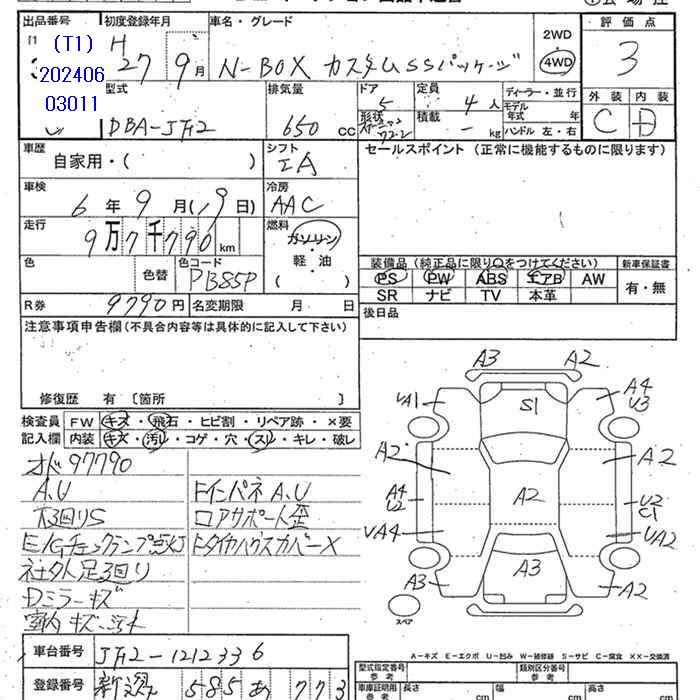 出品番号 初度登録年月 車名・グレード 2WD 評価点
(T1) H 27 9月 N-BOX カスタム SSパッケージ 4WD 3
202406
03011
型式 排気量 ドア 定員 ディーラー・並行 外装 内装
DBA-JF2 650 cc 5 4人 モデル年式 年 C D
形状 積載 - kg ハンドル 左・右
車歴 シフト セールスポイント (正常に機能するものに限ります)
自家用・( ) IA
車検 冷房
6年 9月(19日) AAC
走行 燃料
9万7千790km ガソリン
色 色替 色コード 軽・油
PB85P ( )
装備品 (純正品に限り○をつけてください) 新車保証書
PS PW ABS エアB AW 有・無
SR ナビ TV 本革
R券 9790円 名変期限 月 日
後日品
注意事項申告欄(不具合内容等は具体的に記入して下さい)
修復歴 有 〔箇所 〕
検査員 FW キズ・飛石・ヒビ割・リペア跡・×要
記入欄 内装 キズ・汚レ・コゲ・穴・スレ・キレ・破レ
オド97790
A,U FインパネA,U
下回りS ロアサポート歪
E/Gチェックランプ点灯 FタイヤハウスカバーX
社外足回り
Dミラーキズ
室内キズ・汚れ
A3 A2
UA1 S1 A4 U3
A2 A2
A4 U2 A2 U2 C1
UA4 UA2
A3 A3 A2
スペア
A-キズ E-エクボ U-凹み W-補修跡 S-サビ C-腐食 XX-交換済
車台番号 JF2-1212336
登録番号 585 あ 773
型式指定番号 参考 類別区分番号 参考
車庫証明用 参考 長さ cm 幅 cm 高さ cm